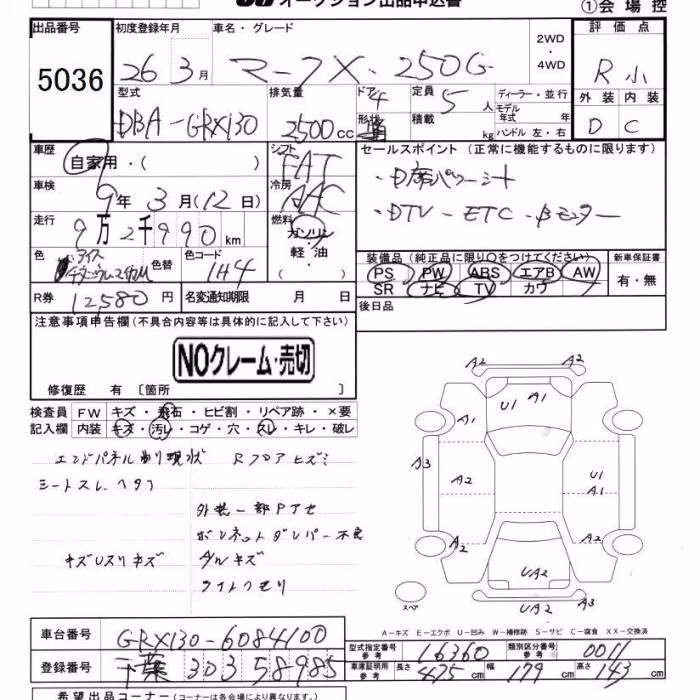 オークション出品申込書
①会場控
出品番号
5036
初度登録年月
26年3月
車名・グレード
マークX・250G
2WD・4WD
評価点
R小
外装 内装
D C
型式
DBA-GRX130
排気量
2500cc
ドア 4
形状
定員 5人
積載 kg
ディーラー・並行
モデル年式 年
ハンドル 左・右
車歴
自家用・( )
シフト
FAT
セールスポイント (正常に機能するものに限ります)
・D席パワーシート
・DTV-ETC-Bモニター
車検
9年3月(12日)
冷房
AAC
走行
9万2千990km
燃料
ガソリン
軽油
( )
色
色替
色コード
1H4
装備品 (純正品に限り○をつけてください)
PS PW ABS エアB AW
SR ナビ TV カワ
新車保証書
有・無
R券
12580円
名変通知期限 月 日
後日品
注意事項申告欄 (不具合内容等は具体的に記入して下さい)
NOクレーム・売切
修復歴 有 〔箇所 〕
検査員記入欄
FW キズ・飛石・ヒビ割・リペア跡・×要
内装 キズ・汚レ・コゲ・穴・スレ・キレ・破レ
エンドパネル削リ現状 Rフロアヒズミ
シートスレ ヘタリ
外装一部Pアセ
ボンネットダンパー不良
キズUスリキズ
ダルキズ
ライトクモリ
A2 A2
U1 A1
A1 A1
A3
U1
A1
A2 A2
UA2
UA2 A3
スペア
A-キズ E-エクボ U-凹み W-補修跡 S-サビ C-腐食 XX-交換済
車台番号
GRX130-6084100
登録番号
千葉 303 58985
型式指定番号 参考
16360
類別区分番号 参考
0011
車庫証明用 参考
長さ 475cm
幅 179cm
高さ 143cm
希望出品コーナー (コーナーは各会場により異なります。)